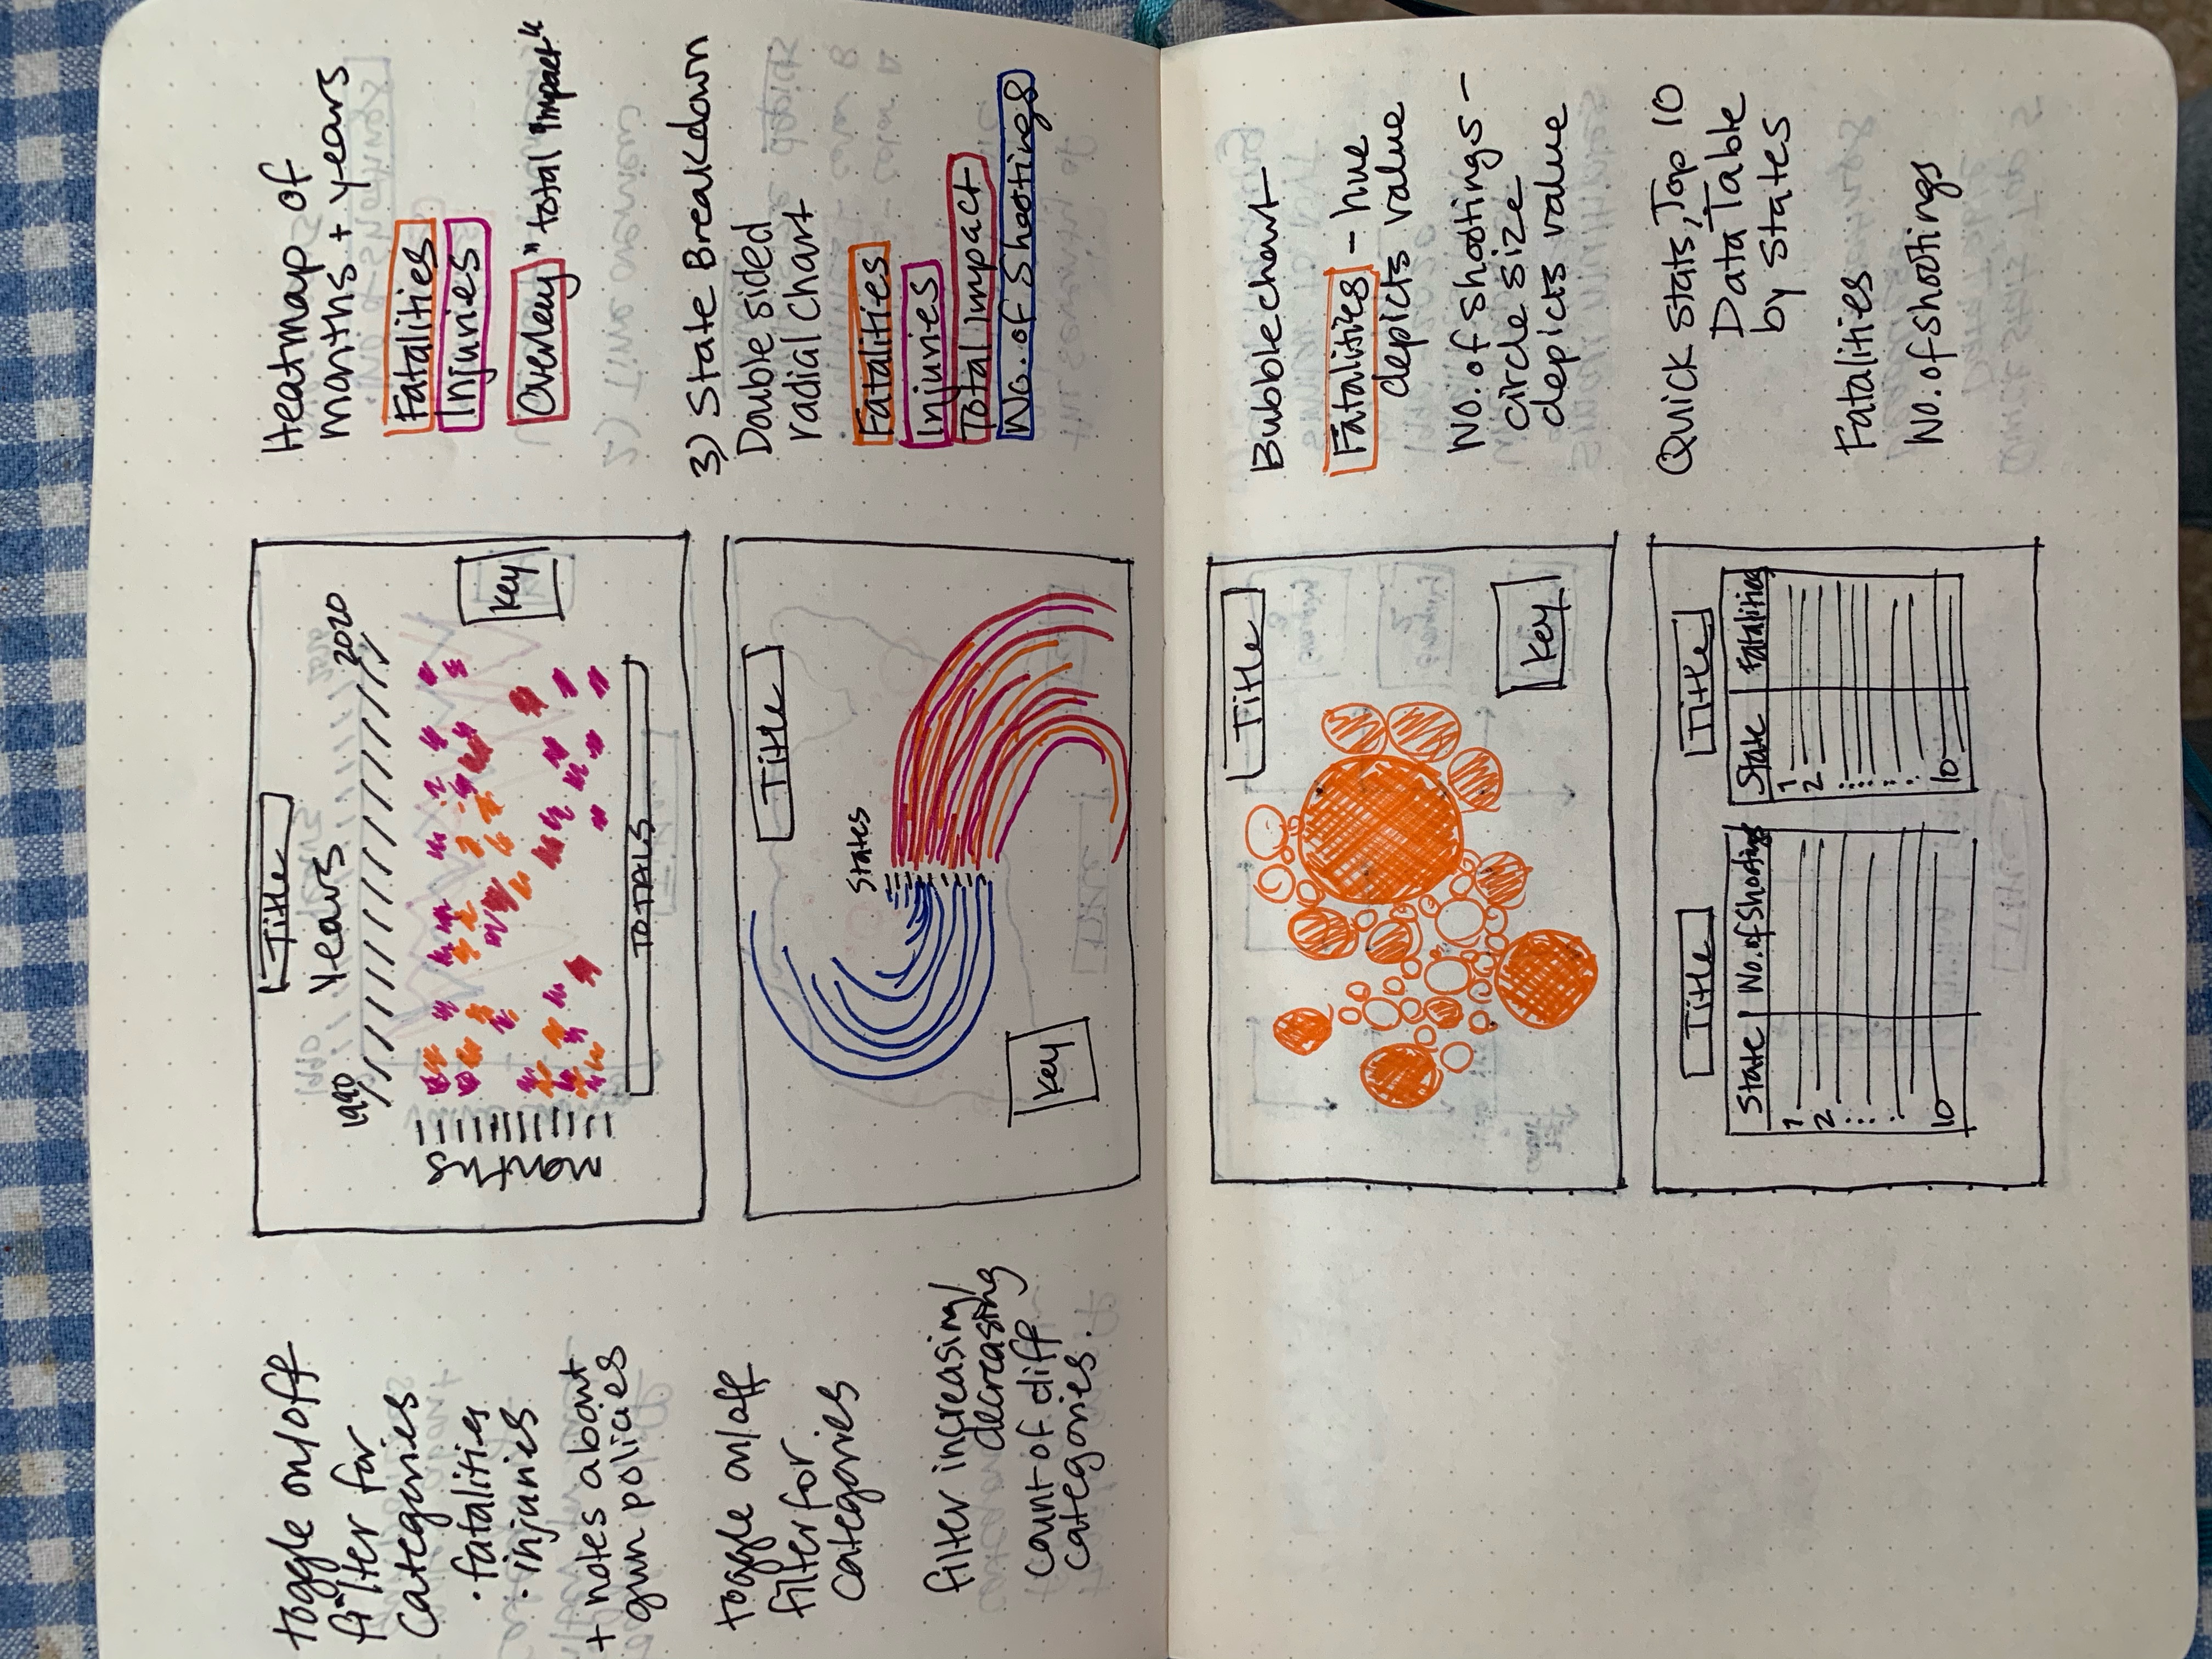 toggle on/off
filter for
categories
· fatalities
· injuries
+ notes about
gun policies
Title
Years
1990
2020
months
Key
TOTALS
Heatmap of
months + years
Fatalities
Injuries
Overlay "total impact"
toggle on/off
filter for
categories
filter increasing/
decreasing
count of diff
categories.
Title
States
Key
3) State Breakdown
Double sided
radial chart
Fatalities
Injuries
Total Impact
No. of Shootings
Title
Key
Bubblechart
Fatalities - hue
depicts value
No. of shootings -
circle size
depicts value
Title
State No. of Shootings
1
2
10
Title
State Fatalities
1
2
10
Quick stats, Top 10
Data Table
by States
Fatalities
No. of shootings